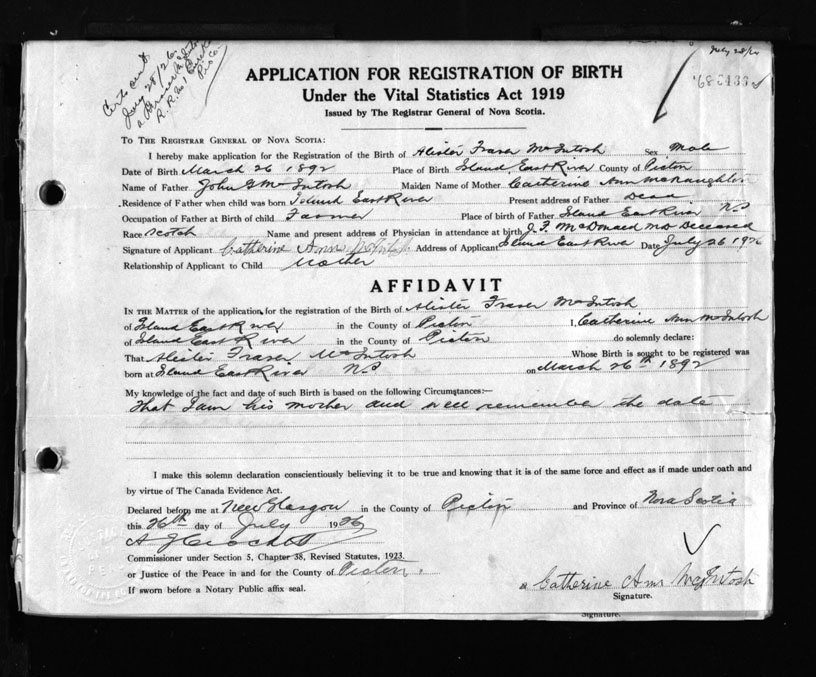 July 28/26
Cert. cert.
July 28/26
R. R. No 1 Eureka
Pic. Co.
APPLICATION FOR REGISTRATION OF BIRTH
Under the Vital Statistics Act 1919
Issued by The Registrar General of Nova Scotia.
TO THE REGISTRAR GENERAL OF NOVA SCOTIA:
I hereby make application for the Registration of the Birth of Alister Fraser McIntosh Sex Male
Date of Birth March 26 1892 Place of Birth Island East River County of Pictou
Name of Father John G McIntosh Maiden Name of Mother Catherine Ann McNaughton
Residence of Father when child was born Island East River Present address of Father Dead
Occupation of Father at Birth of child Farmer Place of birth of Father Island East River N.S
Race Scotch Name and present address of Physician in attendance at birth J. F. McDonald MD Deceased
Signature of Applicant Catherine Ann McIntosh Address of Applicant Island East River Date July 26 1926
Relationship of Applicant to Child Mother
AFFIDAVIT
IN THE MATTER of the application, for the registration of the Birth of Alister Fraser McIntosh
of Island East River in the County of Pictou I, Catherine Ann McIntosh
of Island East River in the County of Pictou do solemnly declare:
That Alister Fraser McIntosh Whose Birth is sought to be registered was
born at Island East River N.S on March 26th 1892
My knowledge of the fact and date of such Birth is based on the following Circumstances:—
That I am his mother and well remember the date
I make this solemn declaration conscientiously believing it to be true and knowing that it is of the same force and effect as if made under oath and
by virtue of The Canada Evidence Act.
Declared before me at New Glasgow in the County of Pictou and Province of Nova Scotia
this 26th day of July 1926
Commissioner under Section 5, Chapter 38, Revised Statutes, 1923.
or Justice of the Peace in and for the County of Pictou.
If sworn before a Notary Public affix seal.
Catherine Ann McIntosh
Signature.
Signature.